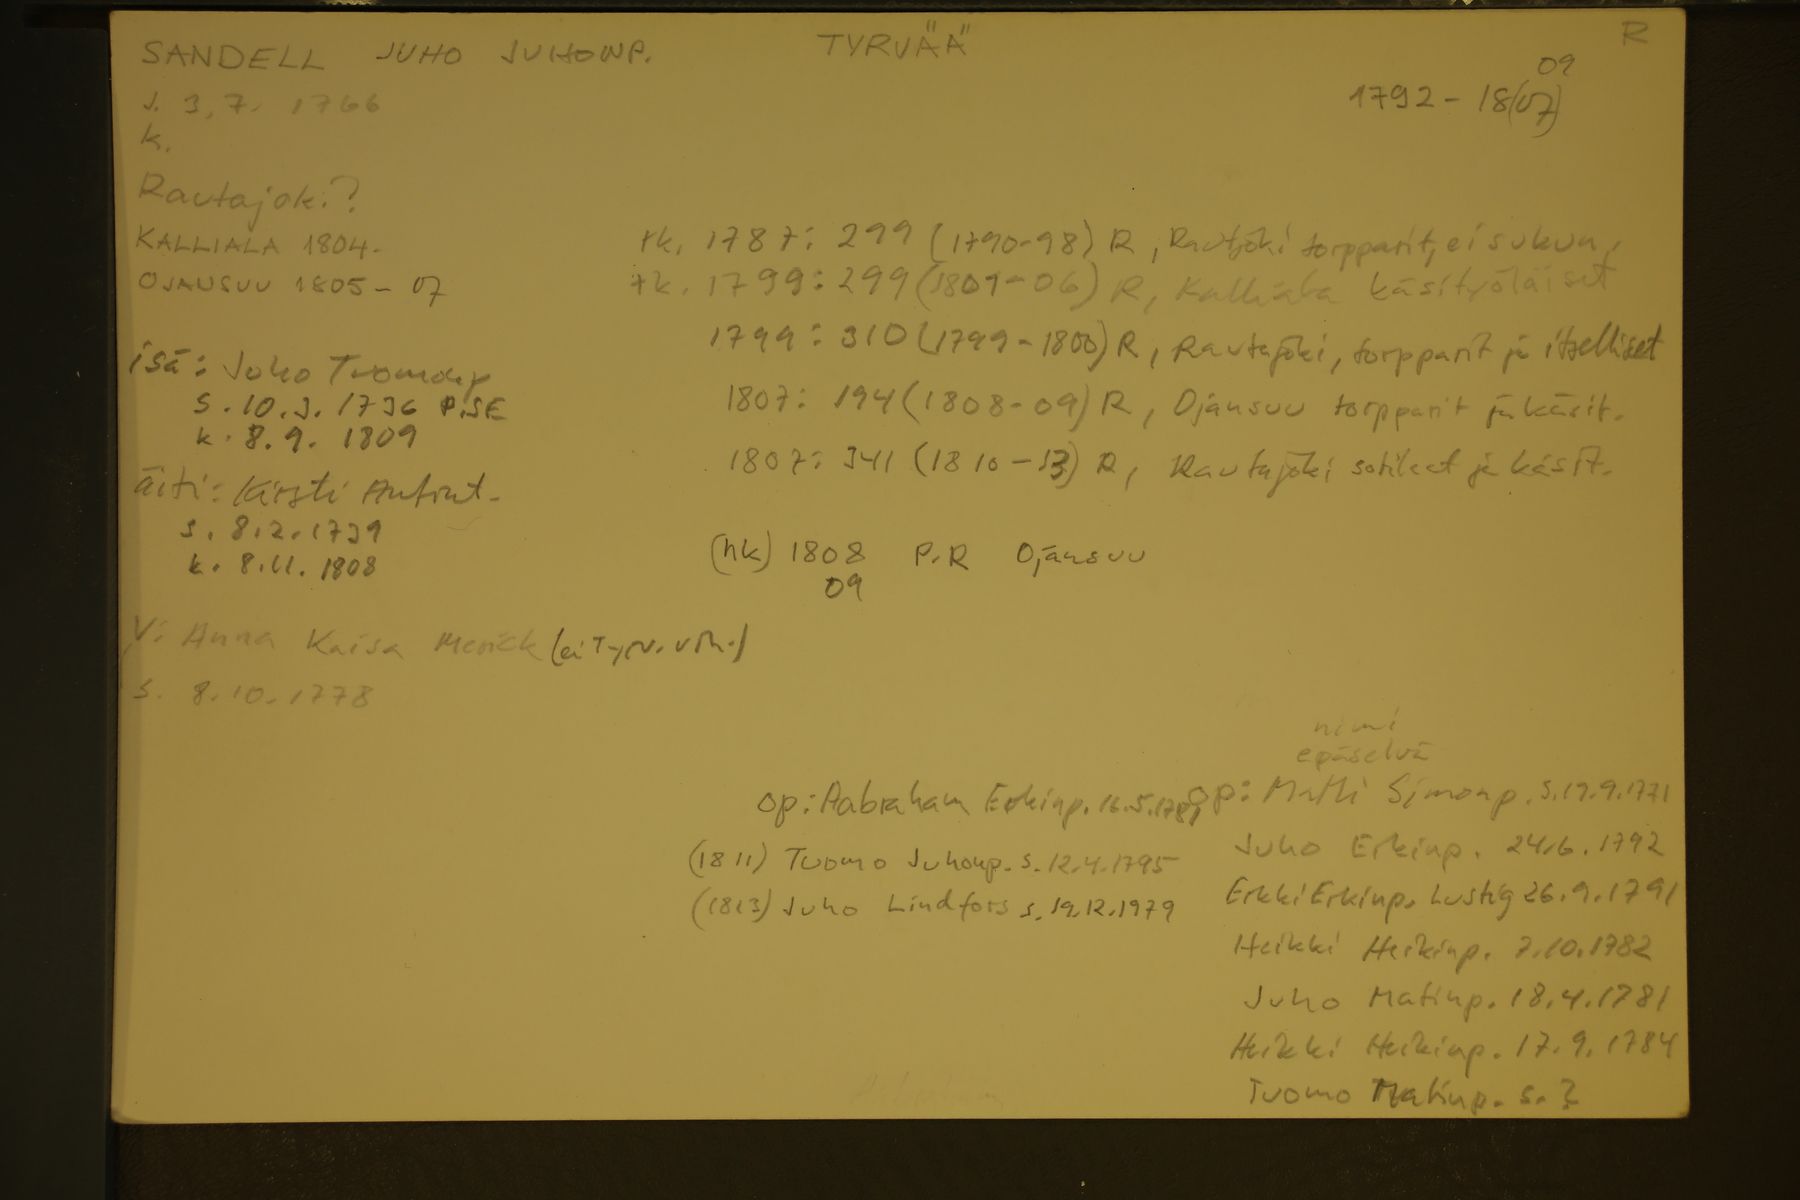 SANDELL JUHO JUHONP. TYRVÄÄ R
s. 3,7. 1766
09
1792 - 18(07)
k.
Rautajoki?
KALLIALA 1804-
OJANSUU 1805 - 07
rk. 1787: 299 (1790-98) R, Rautajoki torpparit, ei sukun,
rk. 1799: 299 (1801-06) R, Kalliala käsityöläiset
1799: 310 (1799-1800) R, Rautajoki, torpparit ja itselliset
1807: 194 (1808-09) R, Ojansuu torpparit ja käsit.
1807: 341 (1810-13) R, Rautajoki sotilaat ja käsit.
isä: Juho Tuomanp
s. 10.3. 1736 P.SE
k. 8.9. 1809
äiti: Kirsti Antint.
s. 8.2.1739
k. 8.11. 1808
(hk) 1808 P.R Ojansuu
09
V: Anna Kaisa (ei Tyrv. vih.)
s. 8.10.1778
nimi
epäselvä
op: Aabraham Erkinp. 16.5.1781
(1811) Tuomo Juhonp. s. 12.4.1795
(1813) Juho Lindfors s. 19.12.1979
op: Matti Simonp. s. 19.9.1771
Juho Erkinp. 24.6.1792
Erkki Erkinp. Lustig 26.9.1791
Heikki Heikinp. 7.10.1782
Juho Matinp. 18.4.1781
Heikki Heikinp. 17.9.1784
Tuomo Matinp. s. ?